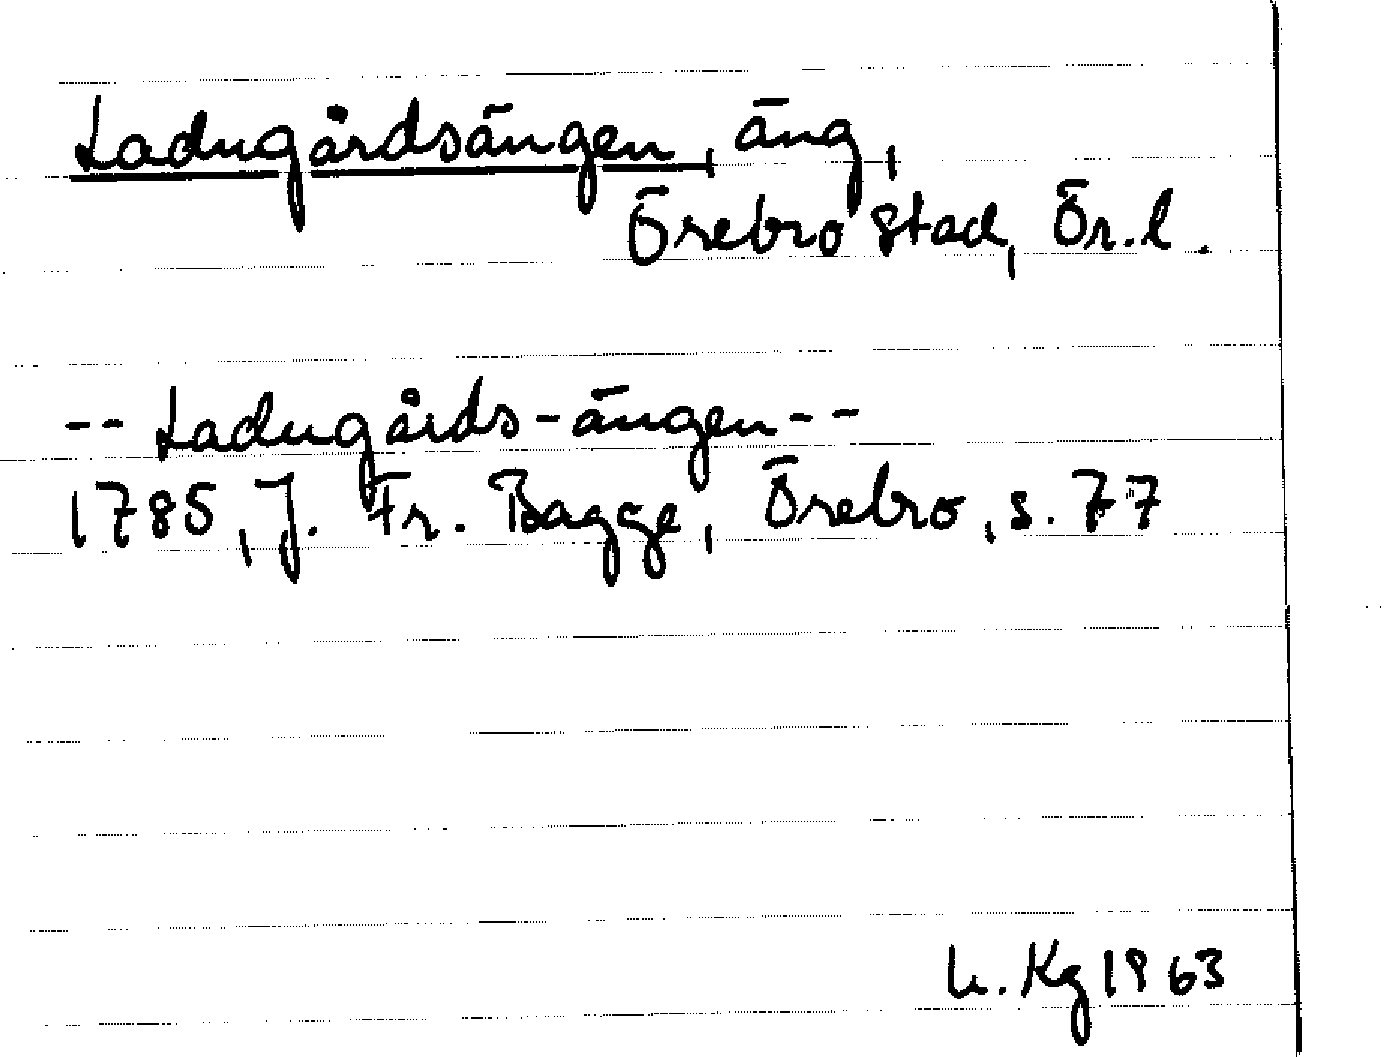 Ladugårdsängen, äng,
Örebro stad, Ör.l.
-- Ladugårds-ängen--
1785, J. Fr. Bagge, Örebro, s. 77
L. Kg 1963